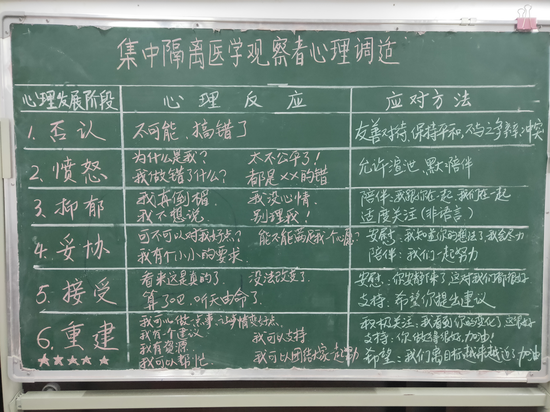 集中隔离医学观察者心理调适
心理发展阶段 心理反应 应对方法
1. 否认 不可能，搞错了 友善对待、保持平和，不与之争辩、冲突
2. 愤怒 为什么是我？ 太不公平了！ 允许渲泄，默默陪伴
我做错了什么？ 都是××的错
3. 抑郁 我真倒楣 我没心情. 陪伴：我跟你在一起，我们在一起
我不想说. 别理我！ 适度关注(非语言)
4. 妥协 可不可以对我好点？ 能不能满足我个心愿？ 安慰：我知道你的想法了，我会尽力
我有个小小的要求. 陪伴：我们一起努力
5. 接受 看来这是真的了. 没法改变了. 安慰：你安静休了 这对我们都很好
算了吧，听天由命了. 支持：希望你提出建议
6. 重建 我可以做点事，让事情变好点. 积极关注：我看到你的变化了 这很好
我有个建议 我可以支持 支持：你做得很好，加油！
★★★★★ 我有资源 我可以团结大家一起动 希望：我们离目标越来越近了 加油
我可以帮忙